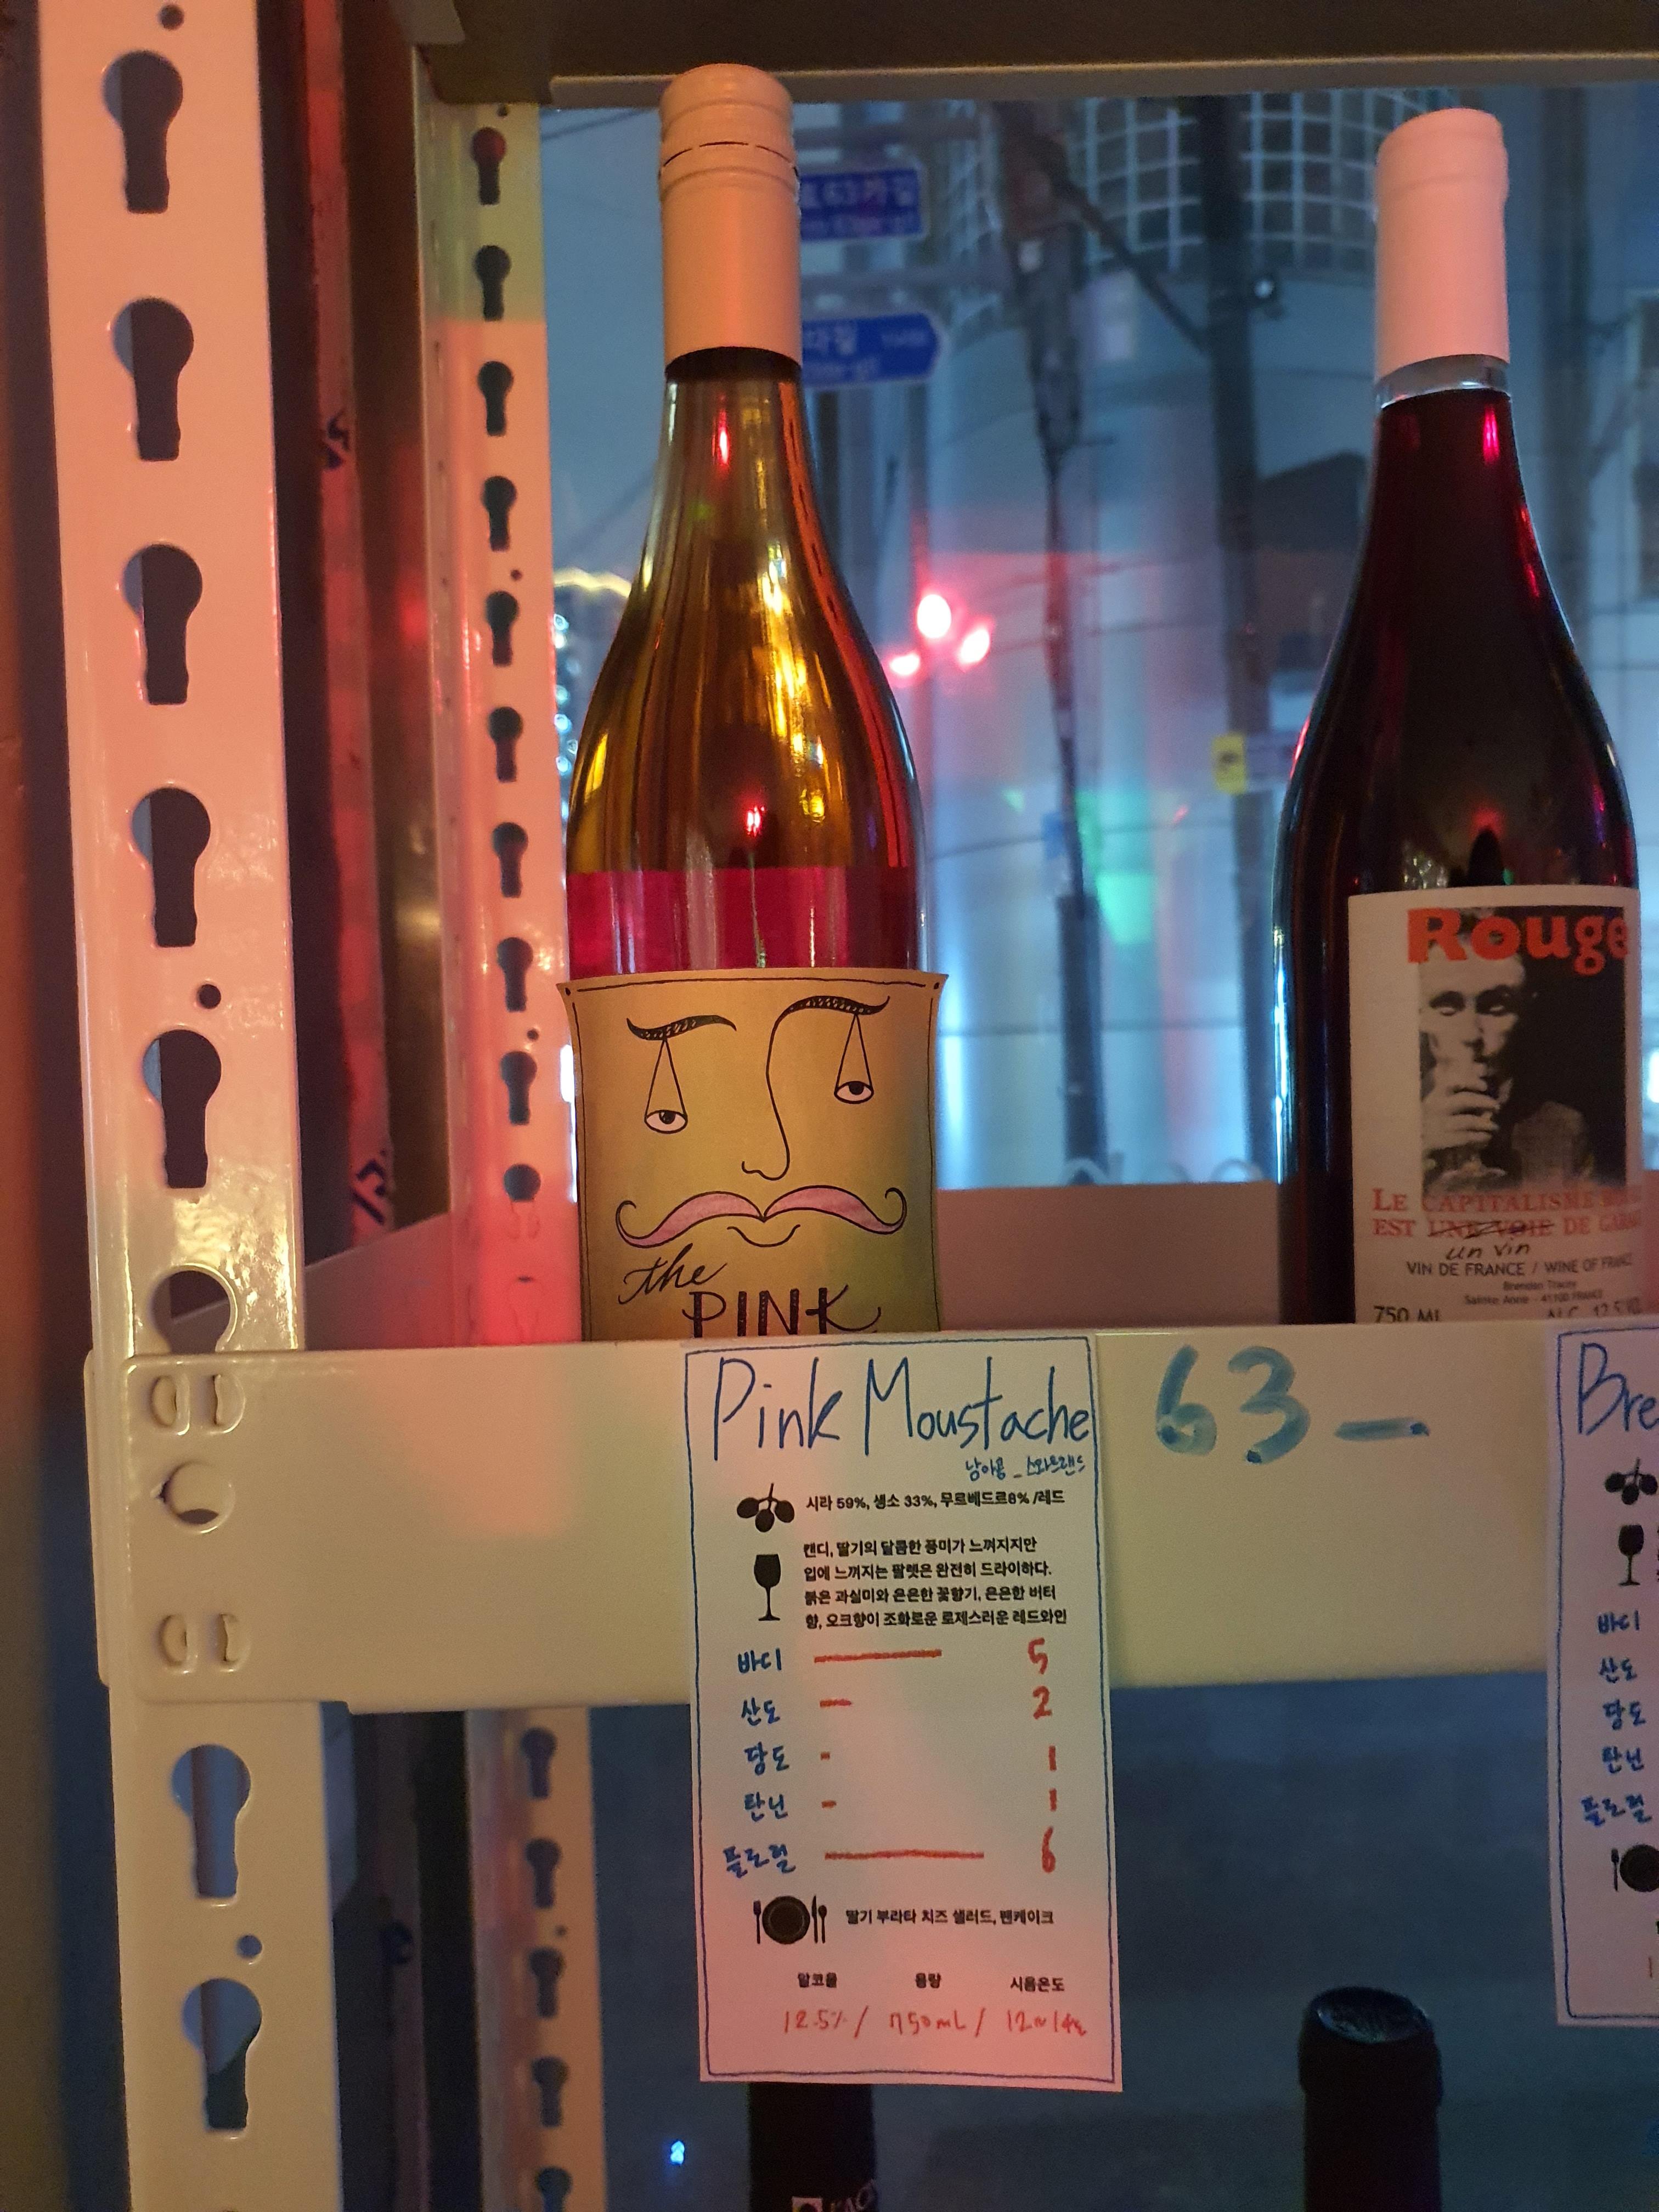 63가길
다길
Rouge
LE CAPITALISME
EST UNE VOIE DE
un vin
VIN DE FRANCE / WINE OF FRANCE
Brendan Tracey
Sainte Anne - 41100 FRANCE
750 ML ALC. 12.5%
the
PINK
Pink Moustache
남아공 _ 스와트랜드
시라 59%, 생소 33%, 무르베드르8% /레드
캔디, 딸기의 달콤한 풍미가 느껴지지만
입에 느껴지는 팔렛은 완전히 드라이하다.
붉은 과실미와 은은한 꽃향기, 은은한 버터
향, 오크향이 조화로운 로제스러운 레드와인
바디 5
산도 2
당도 1
탄닌 1
플로럴 6
딸기 부라타 치즈 샐러드, 팬케이크
알코올 용량 시음온도
12.5% / 750mL / 12~14
63-
Bre
바디
산도
당도
탄닌
플로럴